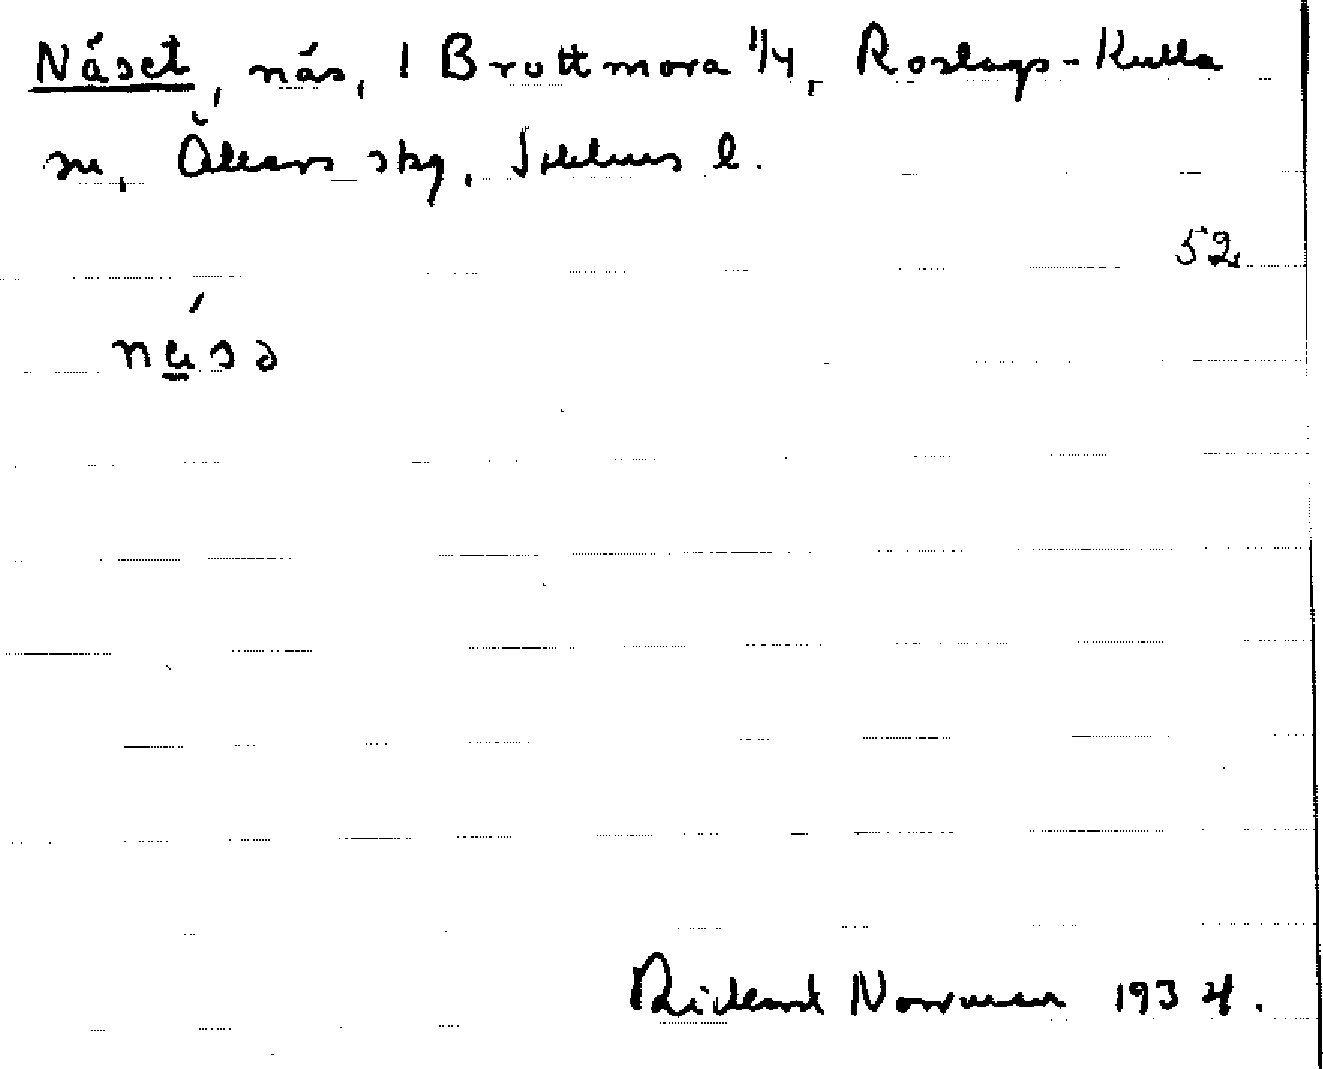 Näset, näs, 1 Bruttmora 11/4, Roslags-Kulla
sn, Åkers skg, Sthlms l.
52
näsə
Rickard Norrman 1934.